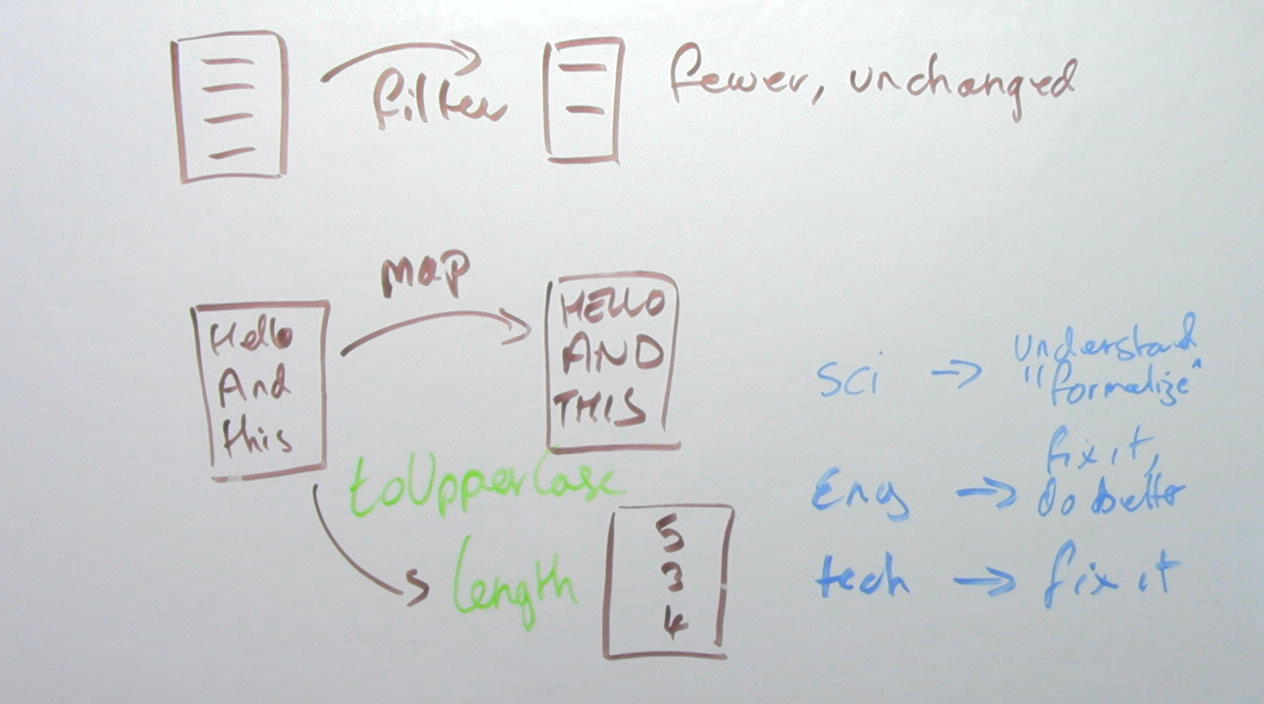 filter
fewer, unchanged
map
Hello
And
this
HELLO
AND
THIS
toUpperCase
length
5
3
4
sci → understand
"formalize"
Eng → fix it,
do better
tech → fix it